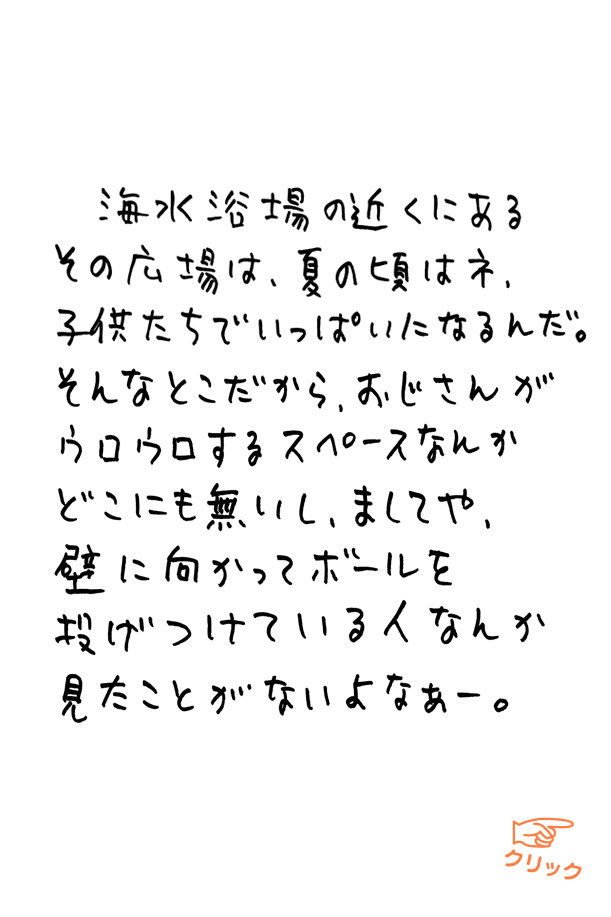 海水浴場の近くにある
その広場は、夏の頃はネ、
子供たちでいっぱいになるんだ。
そんなとこだから、おじさんが
ウロウロするスペースなんか
どこにも無いし、ましてや、
壁に向かってボールを
投げつけている人なんか
見たことがないよなぁー。
クリック